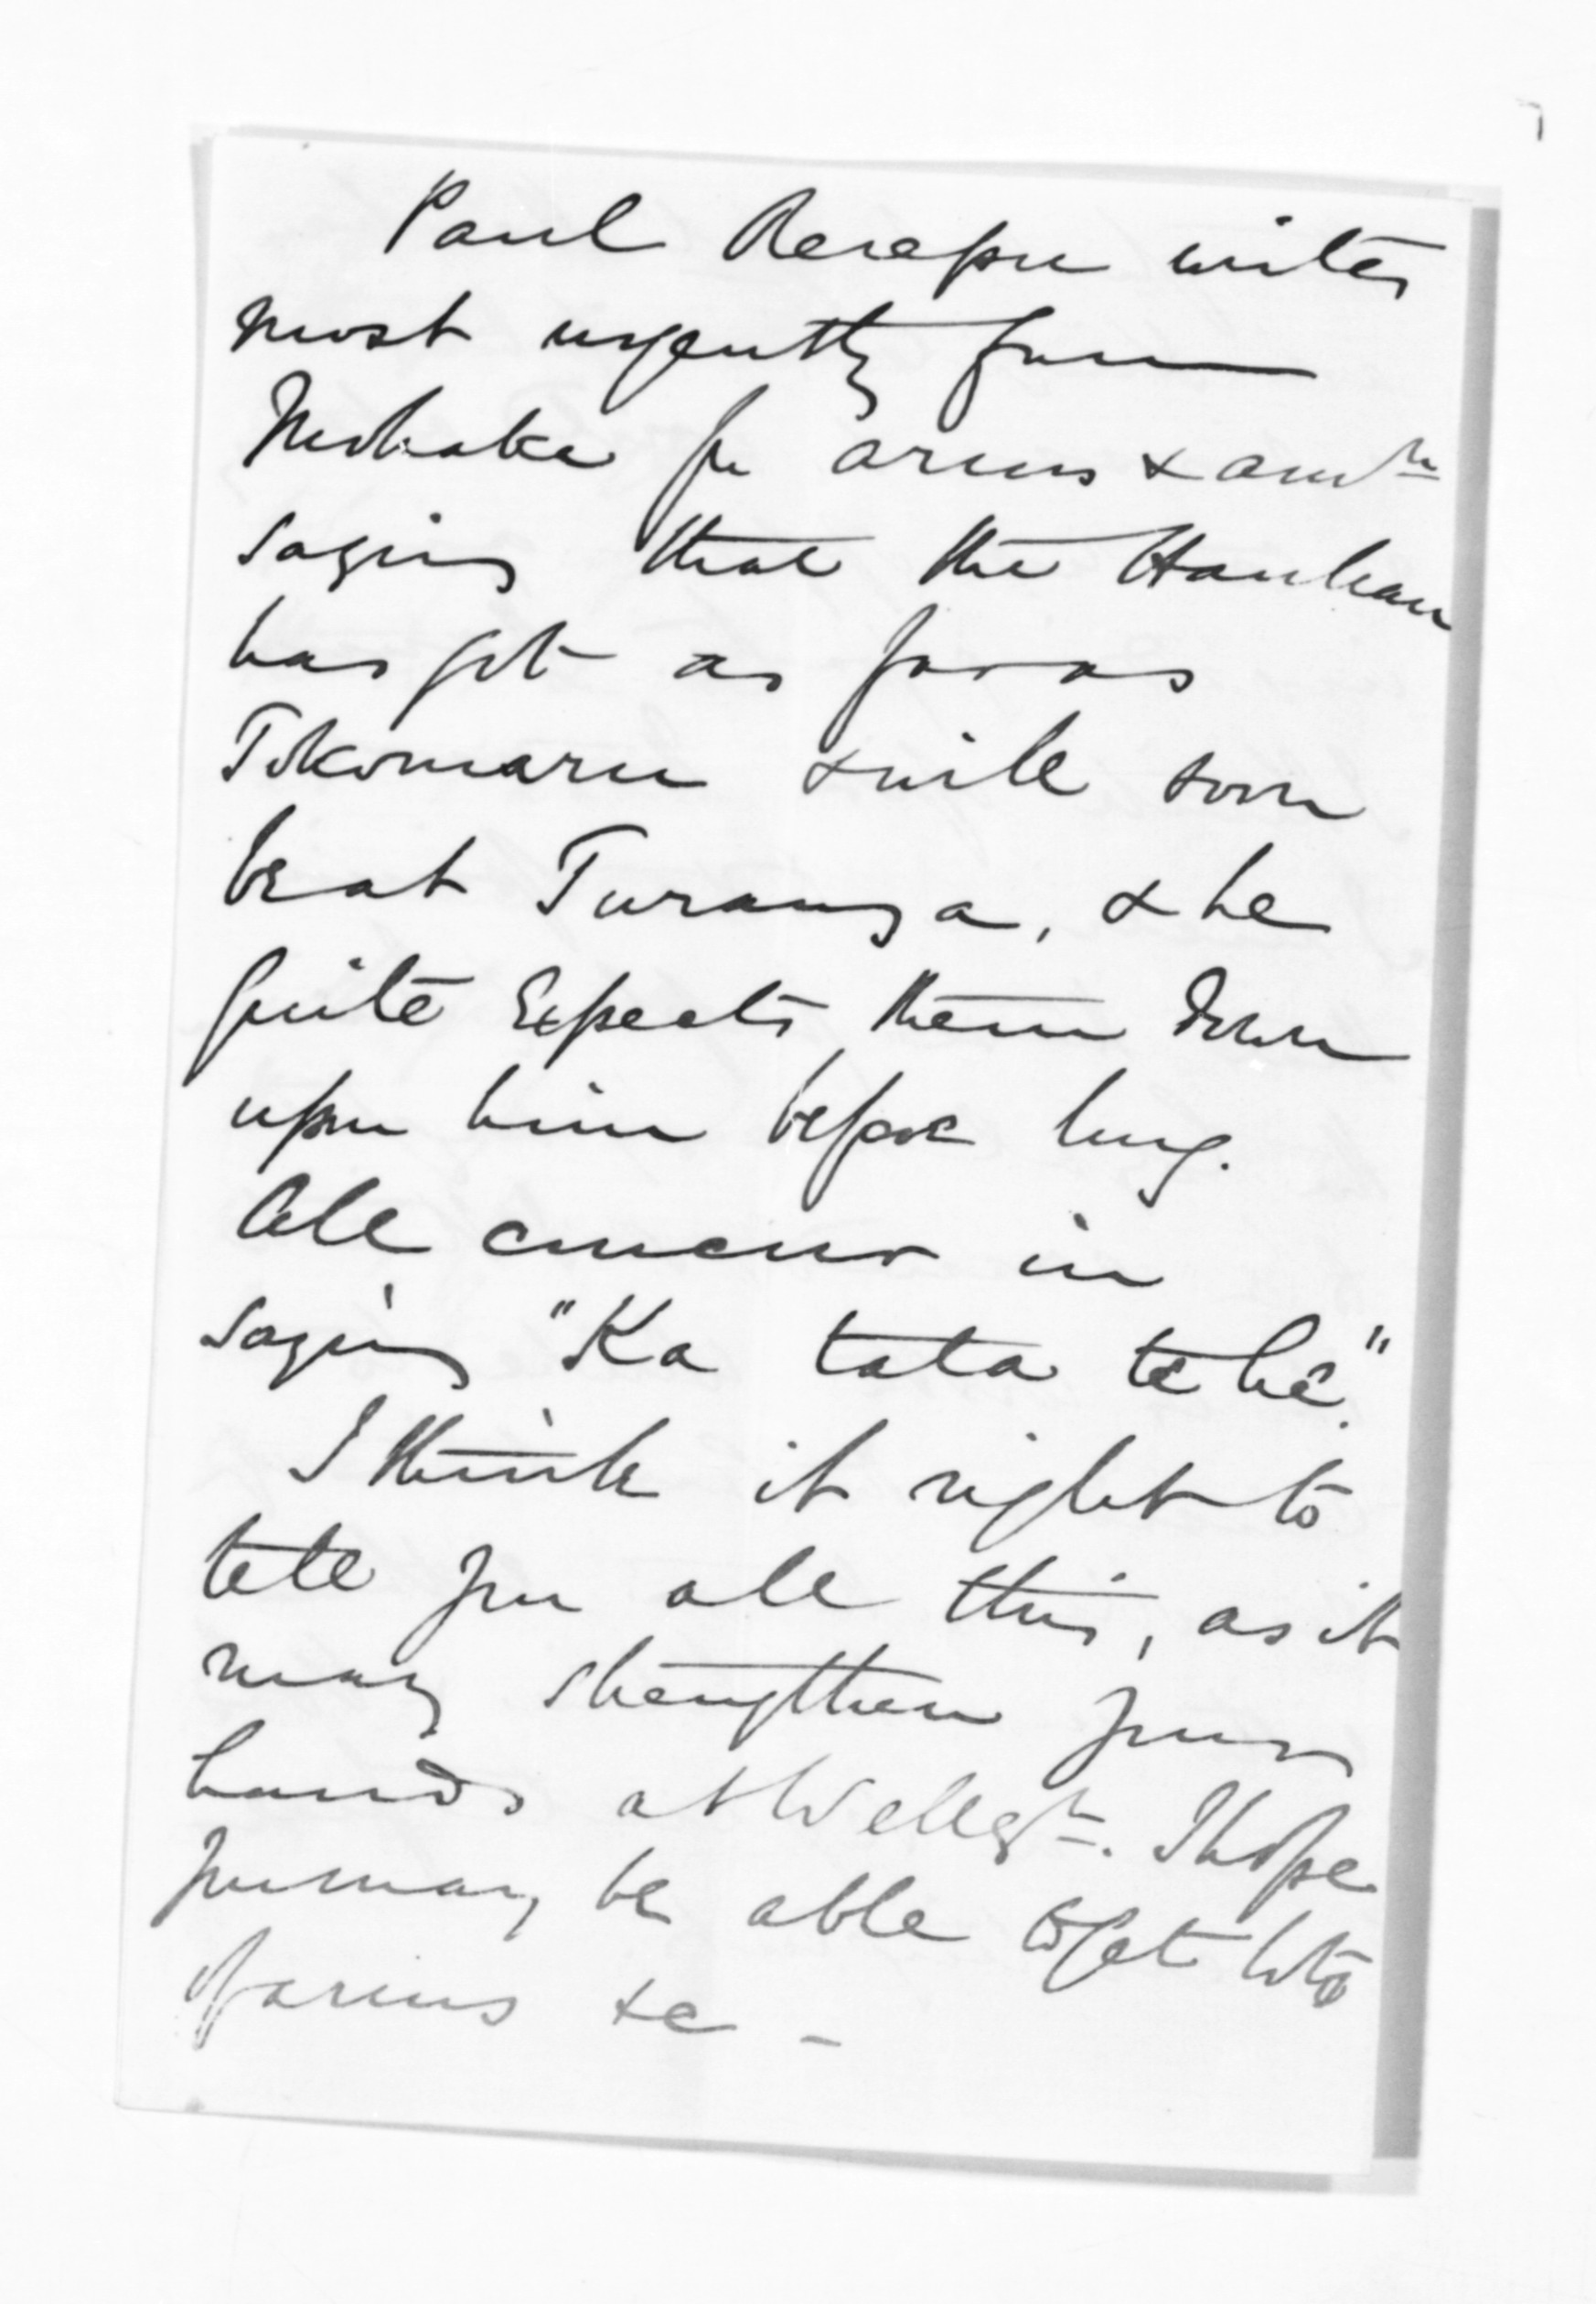 Paul Rerepu writes
most urgently from
Mohaka for arms & amtn
saying that the Hauhau
has got as far as
Tokomaru & will soon
be at Turanga, & he
quite expects them down
upon him before long.
All concur in
saying "Ka tata te hê."
I think it right to
tell you all this, as it
may strengthen your
hands at Wellgtn. I hope
you may be able to get lots
of arms &c -